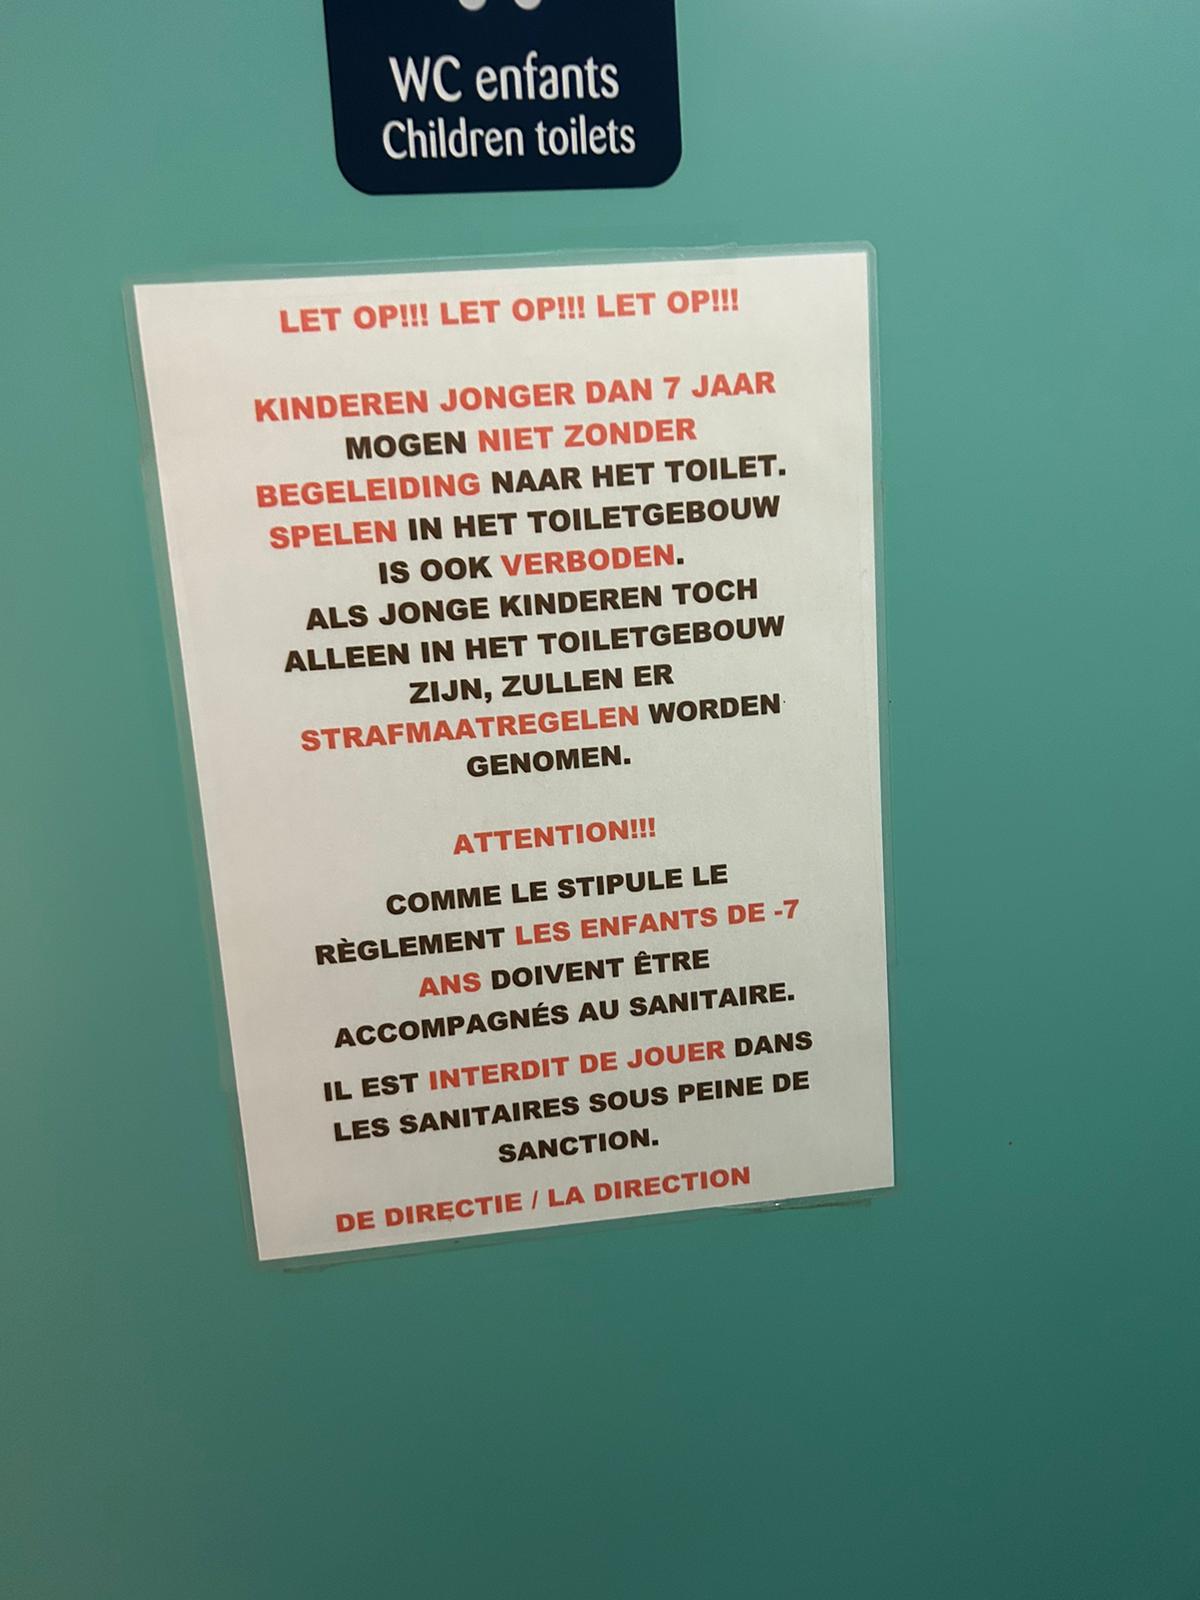 WC enfants
Children toilets
LET OP!!! LET OP!!! LET OP!!!
KINDEREN JONGER DAN 7 JAAR
MOGEN NIET ZONDER
BEGELEIDING NAAR HET TOILET.
SPELEN IN HET TOILETGEBOUW
IS OOK VERBODEN.
ALS JONGE KINDEREN TOCH
ALLEEN IN HET TOILETGEBOUW
ZIJN, ZULLEN ER
STRAFMAATREGELEN WORDEN
GENOMEN.
ATTENTION!!!
COMME LE STIPULE LE
RÈGLEMENT LES ENFANTS DE -7
ANS DOIVENT ÊTRE
ACCOMPAGNÉS AU SANITAIRE.
IL EST INTERDIT DE JOUER DANS
LES SANITAIRES SOUS PEINE DE
SANCTION.
DE DIRECTIE / LA DIRECTION